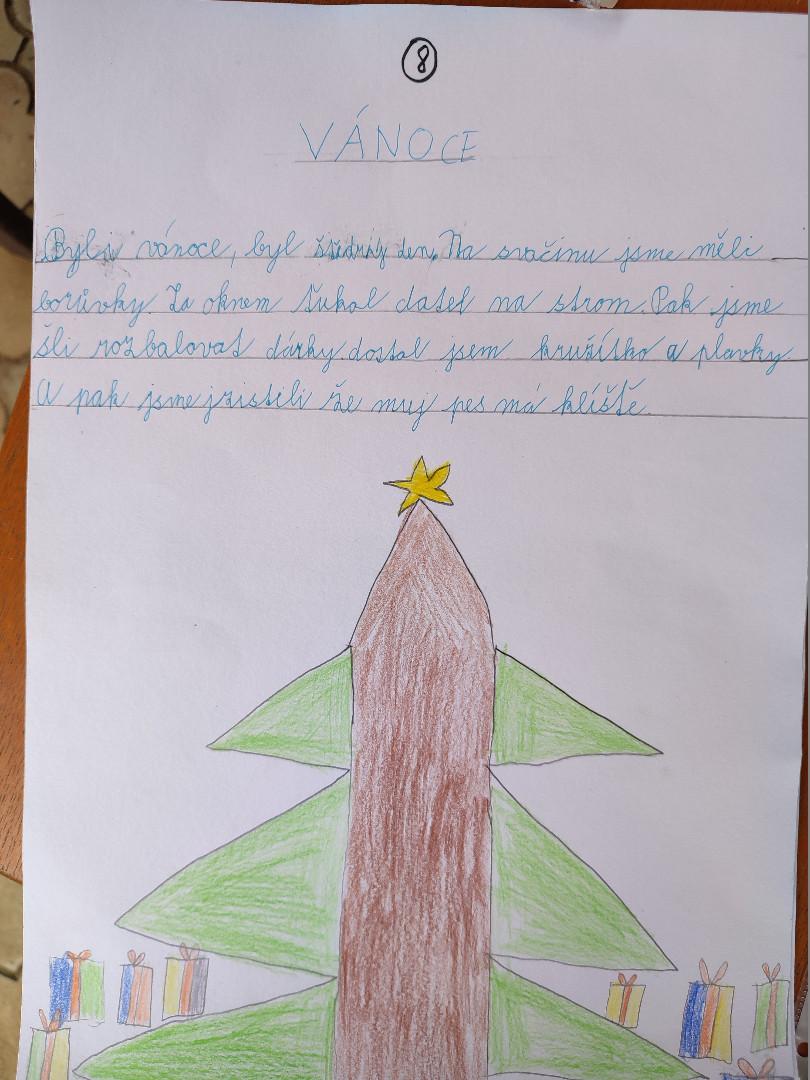 8
VÁNOCE
Byli vánoce, byl štědrý den. Na svačinu jsme měli
borůvky. Za oknem ťukal datel na strom. Pak jsme
šli rozbalovat dárky. dostal jsem kružítko a plavky
A pak jsme zjistili že muj pes má klíště.